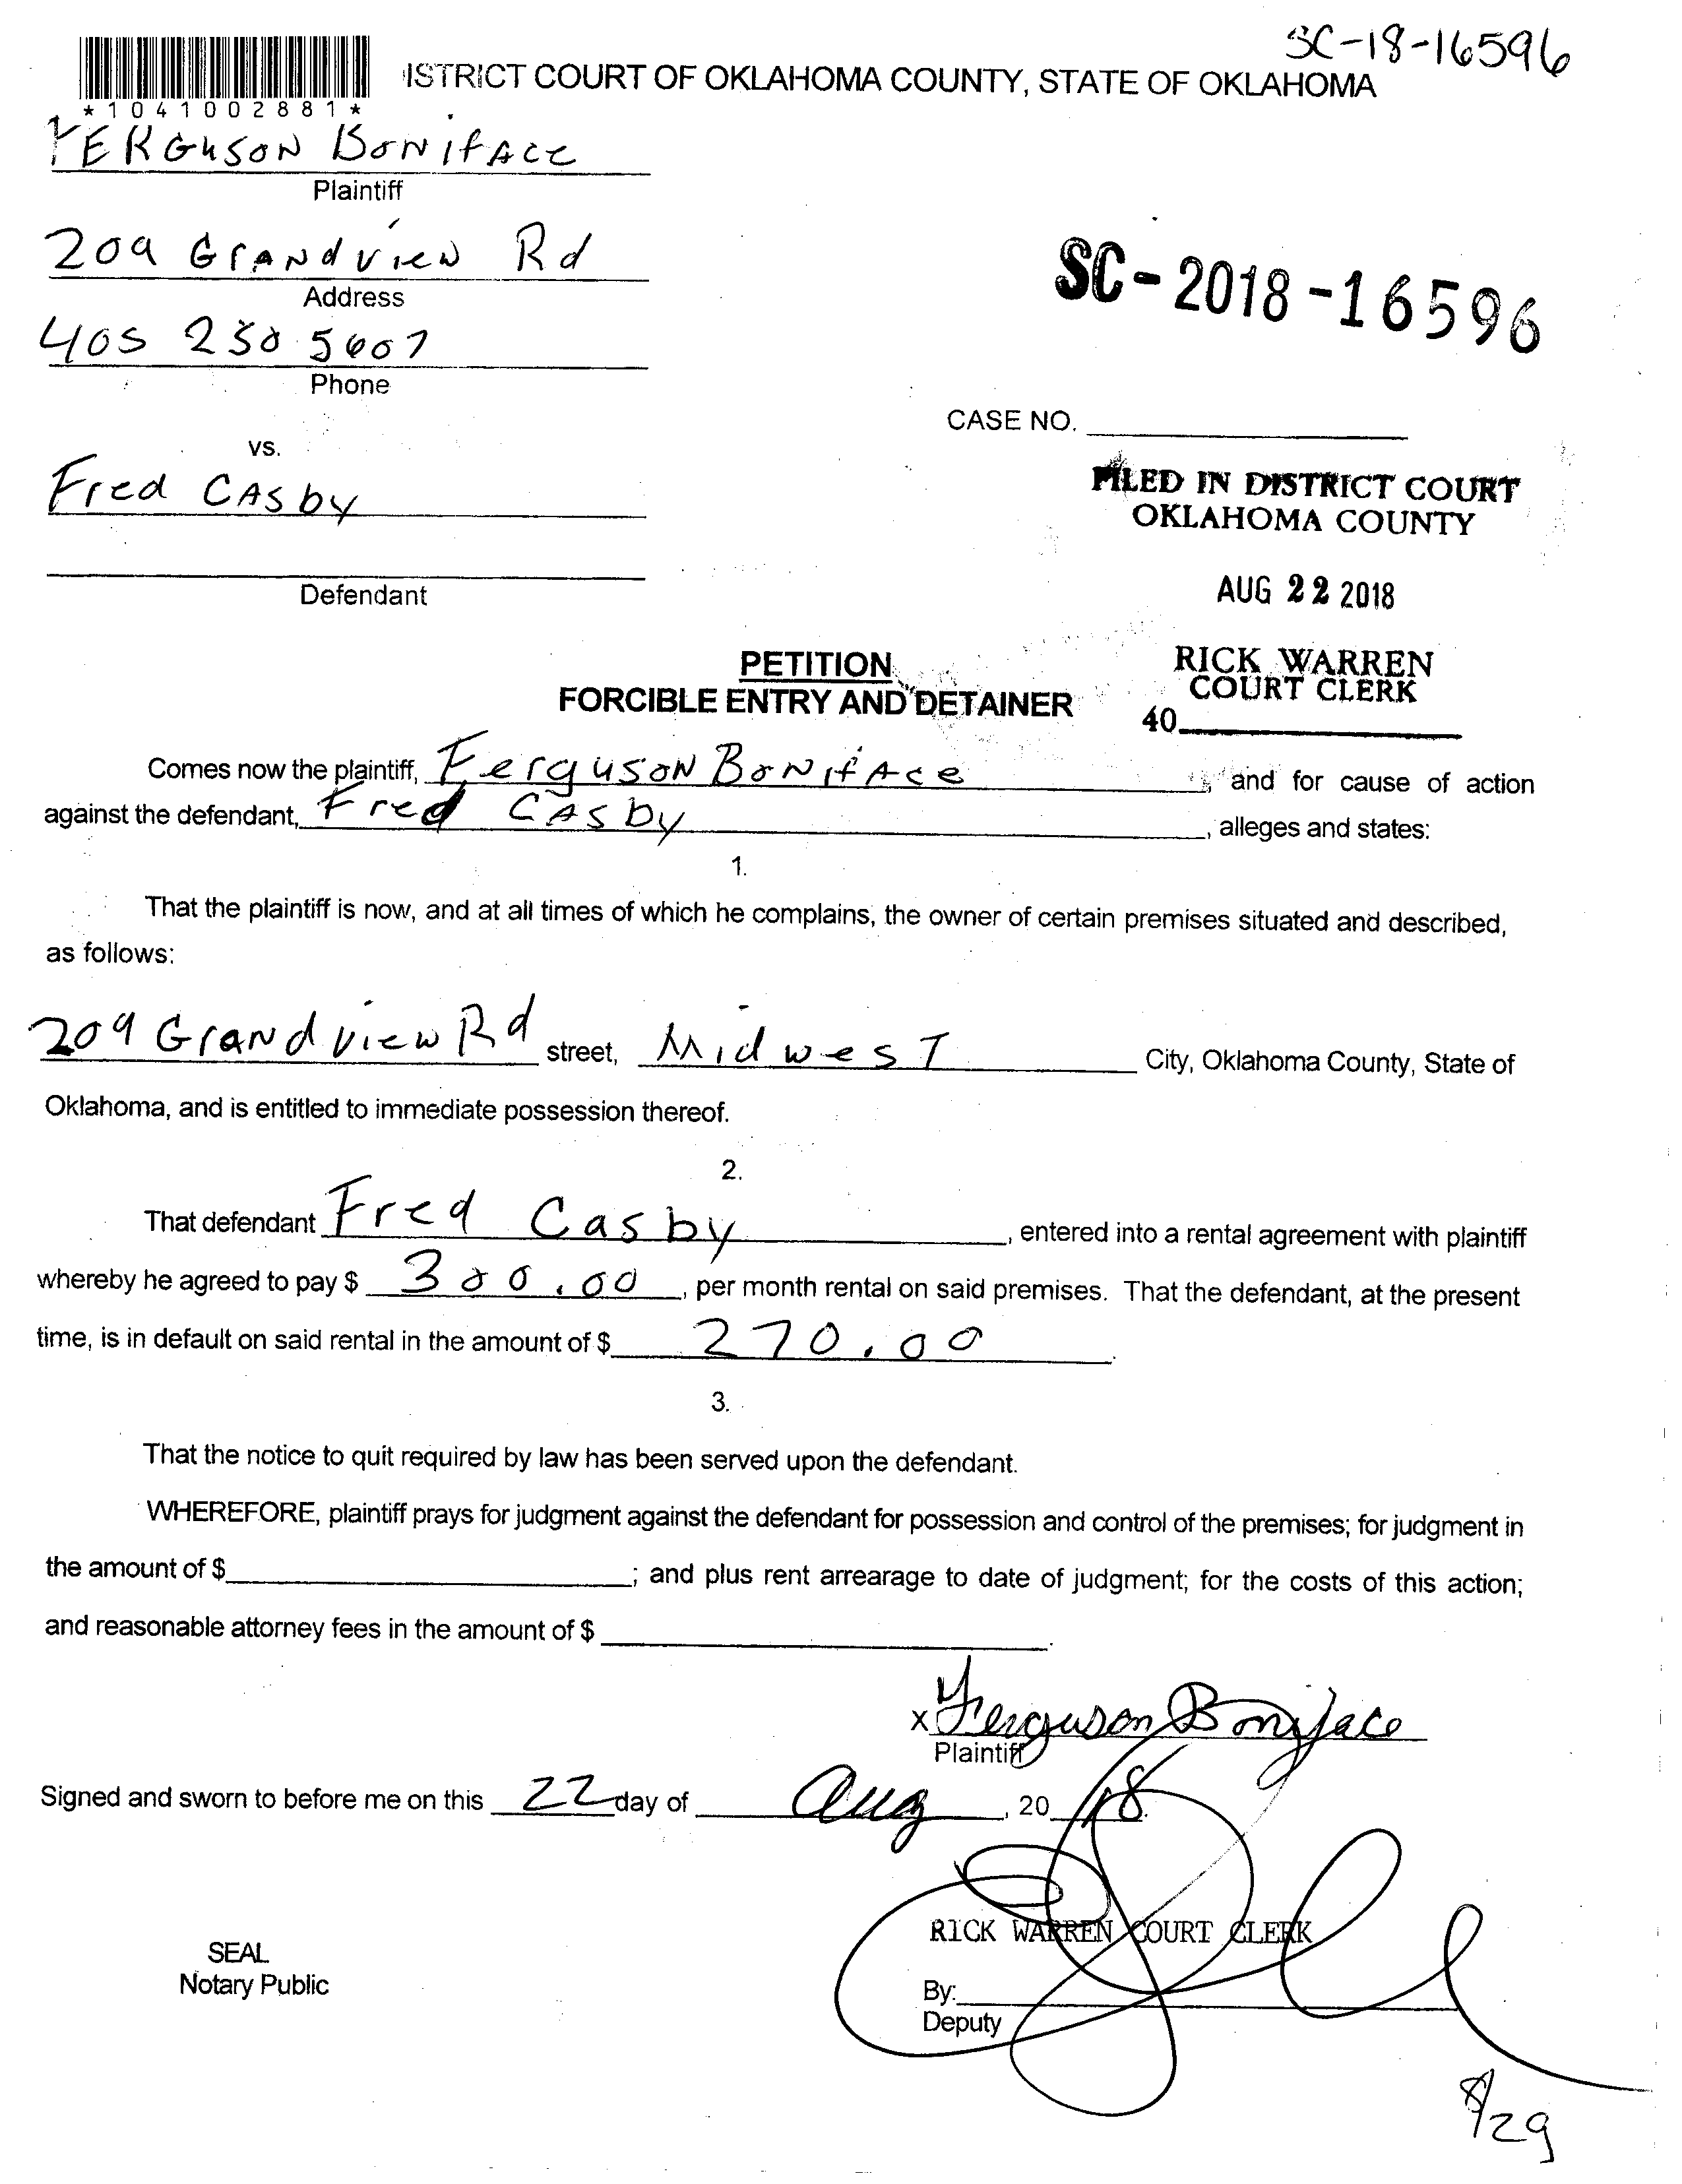 SC-18-16596
ISTRICT COURT OF OKLAHOMA COUNTY, STATE OF OKLAHOMA
*1041002881*
FERGUSON BONIFACE
Plaintiff
209 Grandview Rd
Address
405 230 5607
Phone
SC-2018-16596
CASE NO.
vs.
Fred CASby
FILED IN DISTRICT COURT
OKLAHOMA COUNTY
Defendant
AUG 22 2018
PETITION
FORCIBLE ENTRY AND DETAINER
RICK WARREN
COURT CLERK
40
Comes now the plaintiff, Ferguson Boniface, and for cause of action
against the defendant, Fred CASby, alleges and states:
1.
That the plaintiff is now, and at all times of which he complains, the owner of certain premises situated and described,
as follows:
209 Grandview Rd street, Midwest City, Oklahoma County, State of
Oklahoma, and is entitled to immediate possession thereof.
2.
That defendant Fred Casby, entered into a rental agreement with plaintiff
whereby he agreed to pay $ 300.00, per month rental on said premises. That the defendant, at the present
time, is in default on said rental in the amount of $ 270.00.
3.
That the notice to quit required by law has been served upon the defendant.
WHEREFORE, plaintiff prays for judgment against the defendant for possession and control of the premises; for judgment in
the amount of $ ; and plus rent arrearage to date of judgment; for the costs of this action;
and reasonable attorney fees in the amount of $ .
x Ferguson Boniface
Plaintiff
Signed and sworn to before me on this 22 day of Aug, 20 18.
RICK WARREN COURT CLERK
SEAL
Notary Public
By:
Deputy
8/29